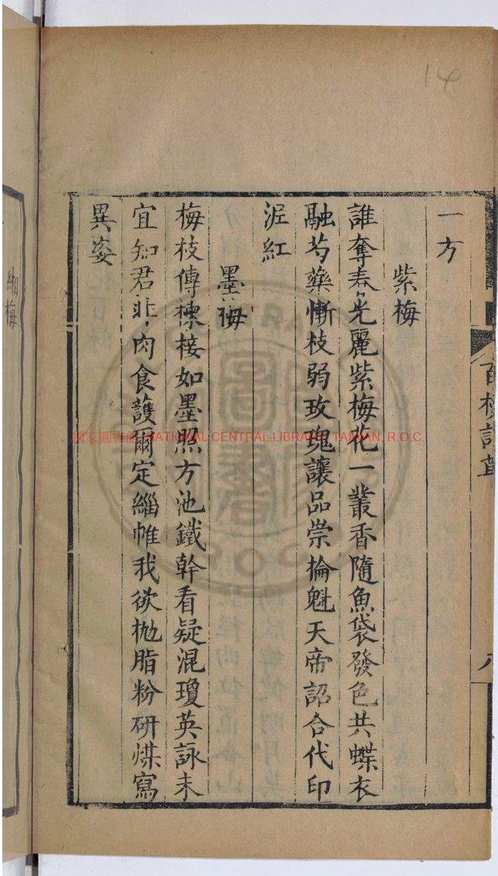 14
一方
紫梅
誰奪春光麗紫梅花一叢香隨魚袋發色共蝶衣
融芍藥慚枝弱玫瑰讓品崇掄魁天帝詔合代印
泥紅
墨梅
梅枝傳楝接如墨照方池鐵幹看疑混瓊英詠未
宜知君非肉食護爾定緇帷我欲拋脂粉研煤寫
異姿
百梅詩
八
NATIONAL CENTRAL LIBRARY, TAIWAN, R.O.C.